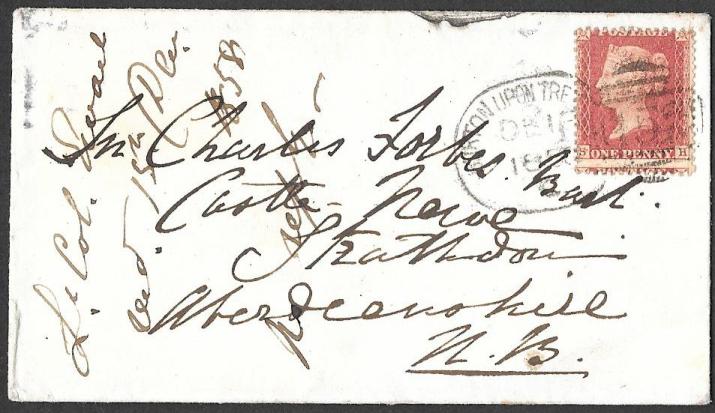 Sir Charles Forbes Bart.
Castle Newe
Strathdon
Aberdeenshire
N.B.
Lt. Col.
15th Dec
1858
TON UPON TRE
DE 1
185
S H
ONE PENNY